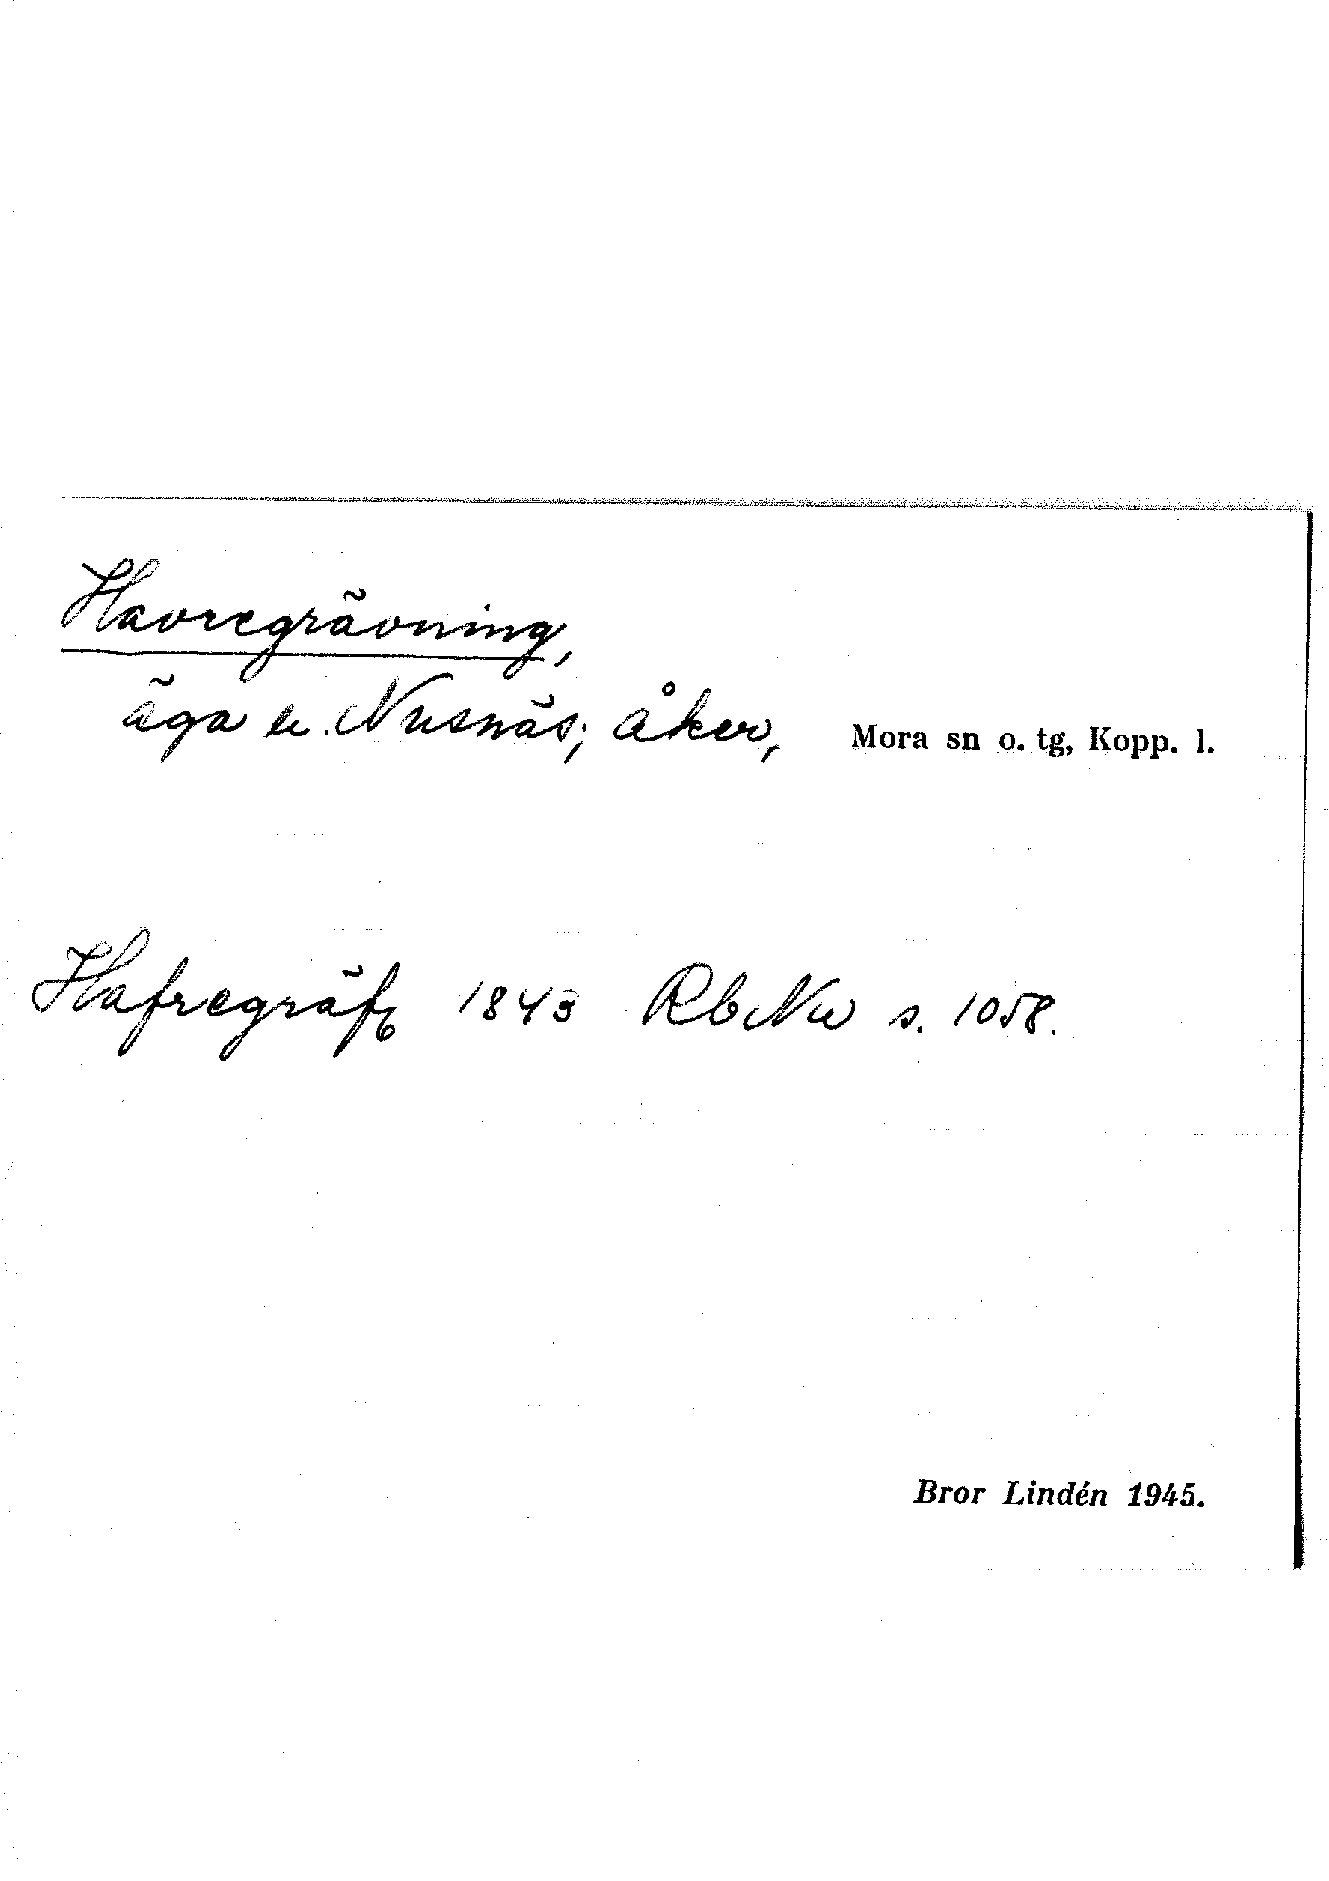 Havregrävning,
äga u. Nusnäs; åker, Mora sn o. tg, Kopp. l.
Hafregräfn 1843 Rb Nu s. 1058.
Bror Lindén 1945.